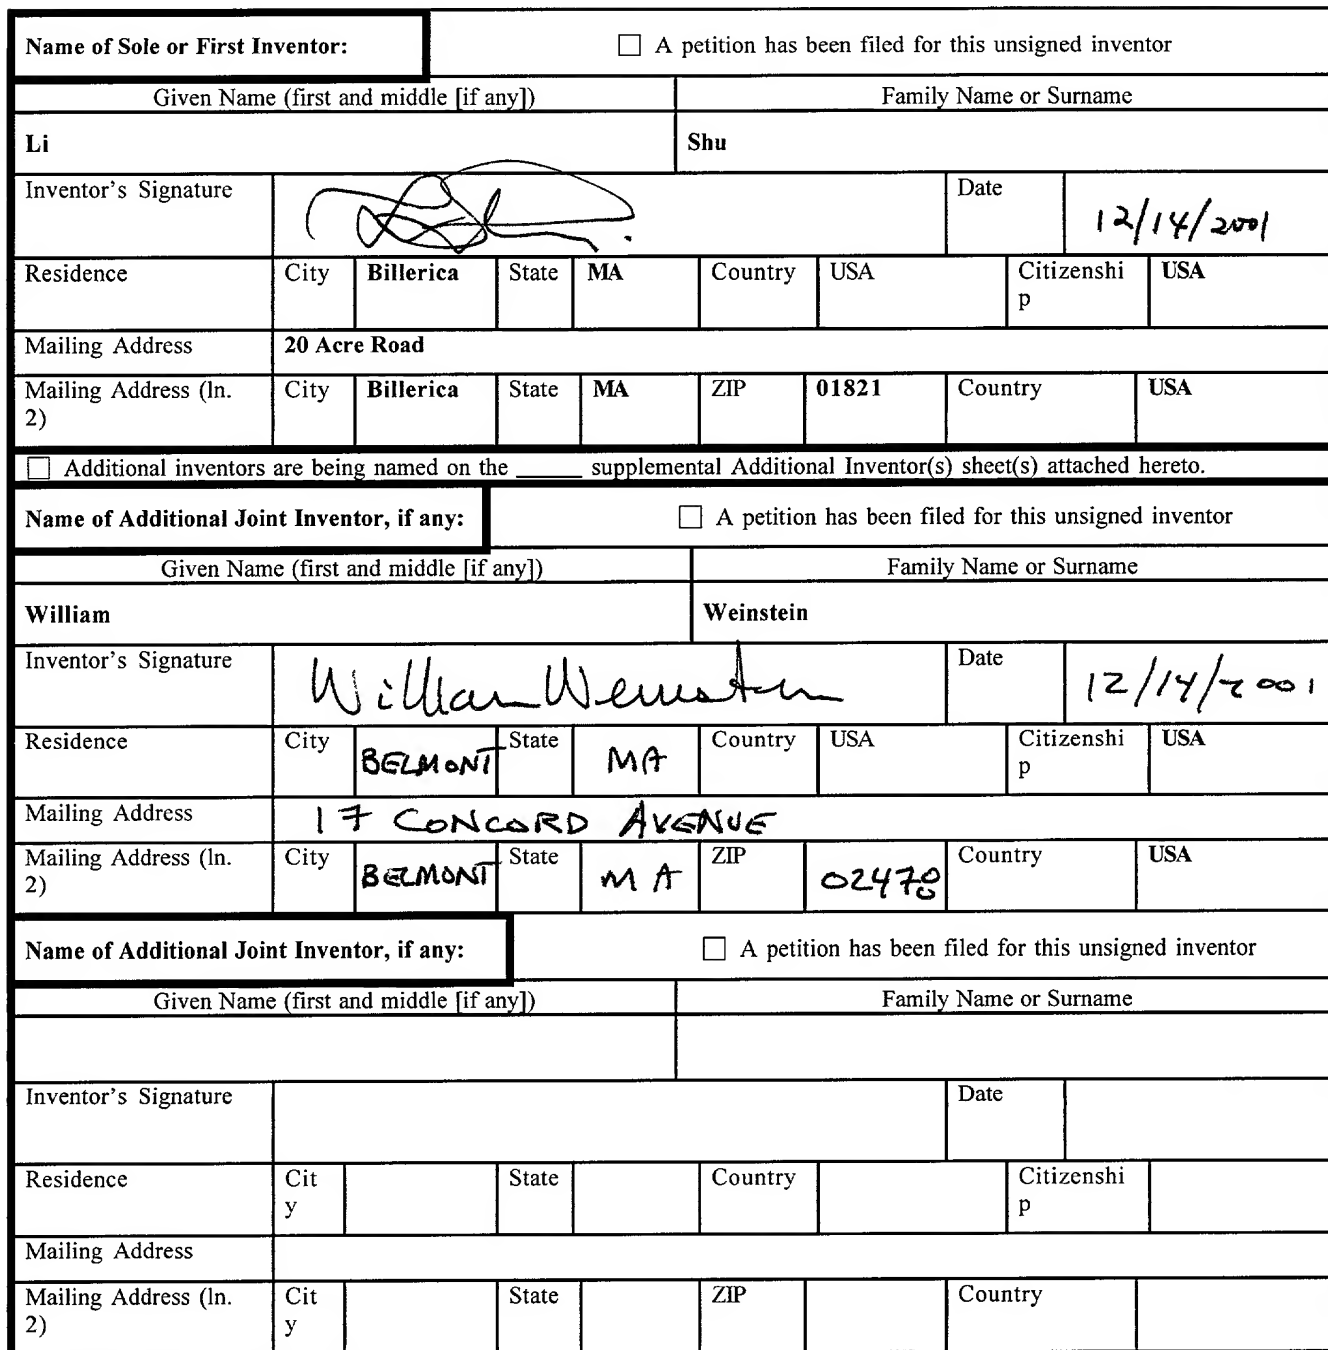 Name of Sole or First Inventor: ☐ A petition has been filed for this unsigned inventor
Given Name (first and middle [if any]) Family Name or Surname
Li Shu
Inventor's Signature Date 12/14/2001
Residence City Billerica State MA Country USA Citizenshi
p
USA
Mailing Address 20 Acre Road
Mailing Address (ln.
2)
City Billerica State MA ZIP 01821 Country USA
☐ Additional inventors are being named on the _____ supplemental Additional Inventor(s) sheet(s) attached hereto.
Name of Additional Joint Inventor, if any: ☐ A petition has been filed for this unsigned inventor
Given Name (first and middle [if any]) Family Name or Surname
William Weinstein
Inventor's Signature William Weinstein Date 12/14/2001
Residence City BELMONT State MA Country USA Citizenshi
p
USA
Mailing Address 17 CONCORD AVENUE
Mailing Address (ln.
2)
City BELMONT State MA ZIP 02478 Country USA
Name of Additional Joint Inventor, if any: ☐ A petition has been filed for this unsigned inventor
Given Name (first and middle [if any]) Family Name or Surname
Inventor's Signature Date
Residence Cit
y
State Country Citizenshi
p
Mailing Address
Mailing Address (ln.
2)
Cit
y
State ZIP Country